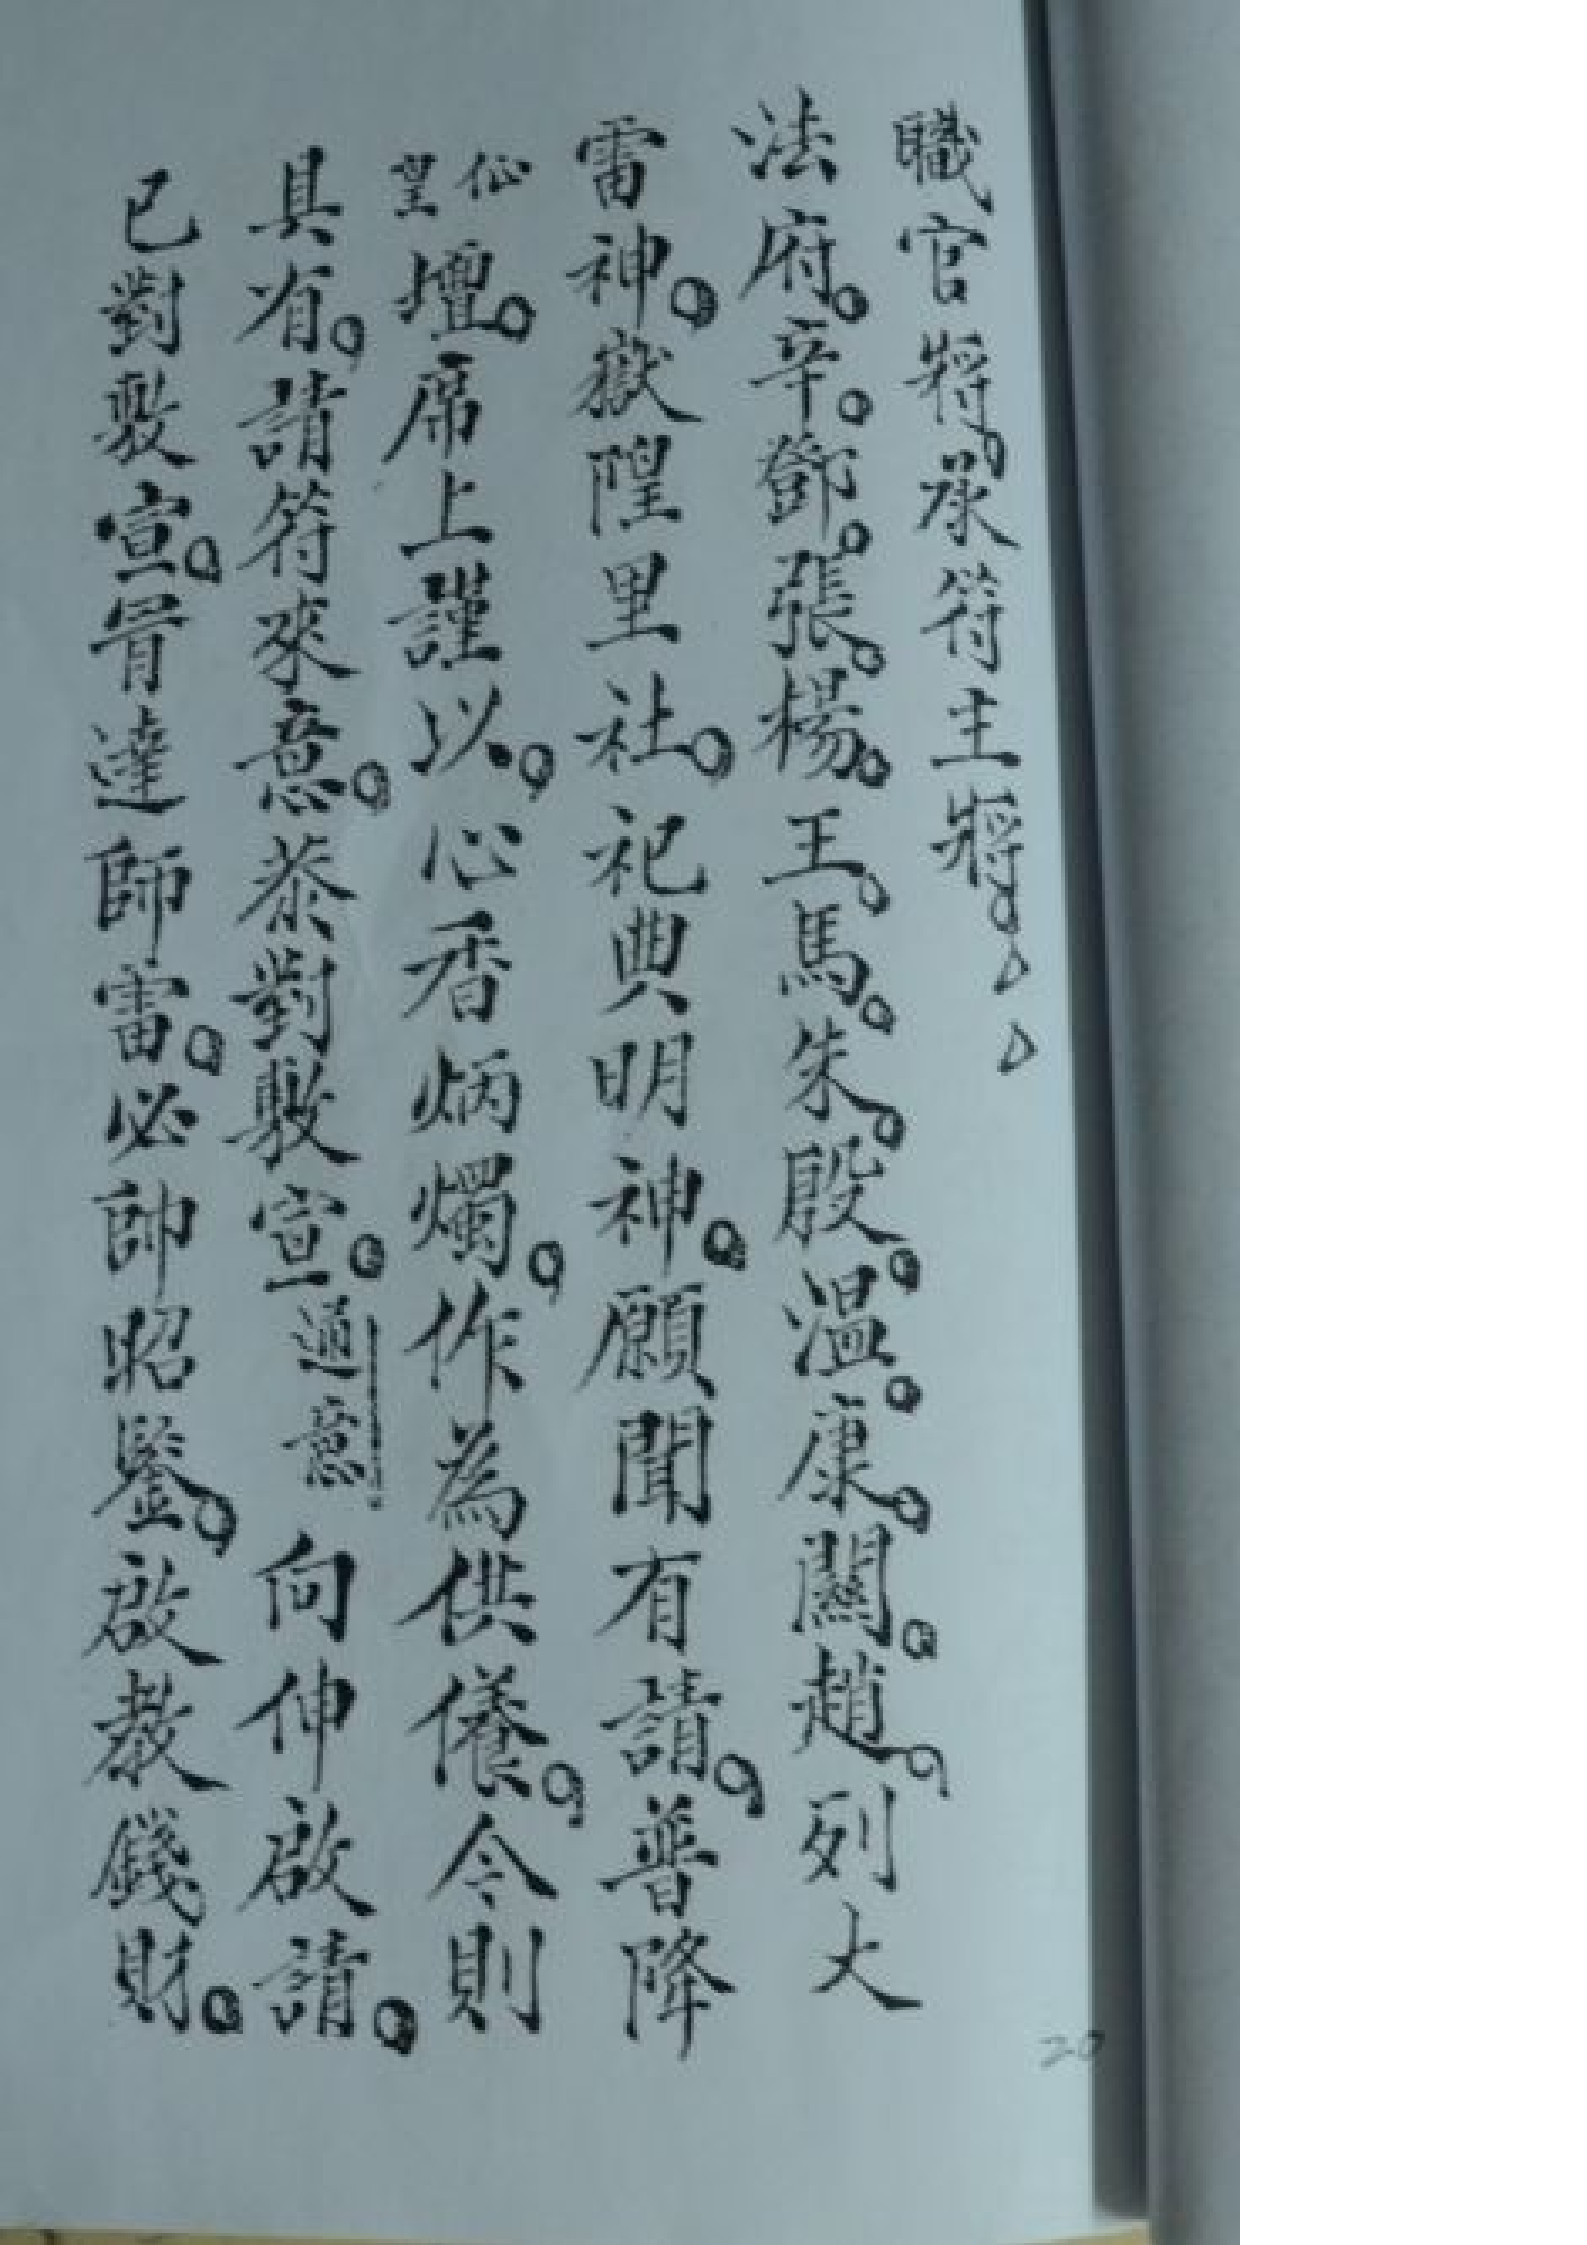 職官將承符主將
法府辛鄧張楊王馬朱殷温康關趙列大
雷神嶽隍里社祀典明神願聞有請普降
仙聖壇席上謹以心香炳燭作為供儀今則
具有請符來意恭對敷宣通意向伸啟請
已對敷宣胥達師雷必帥昭鑒啟教錢財
20